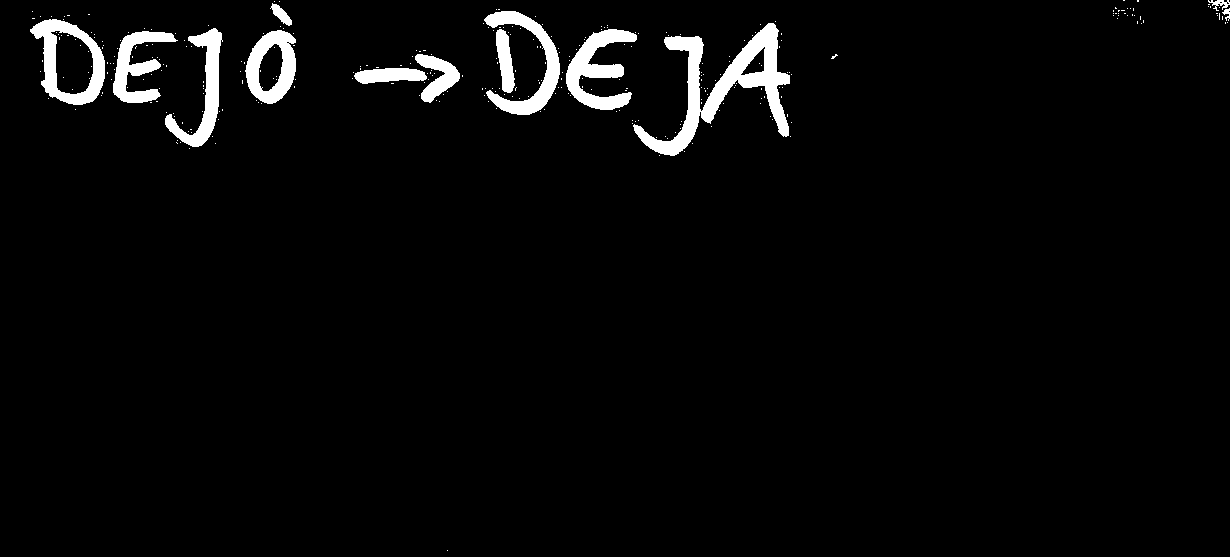 DEJÒ → DEJA